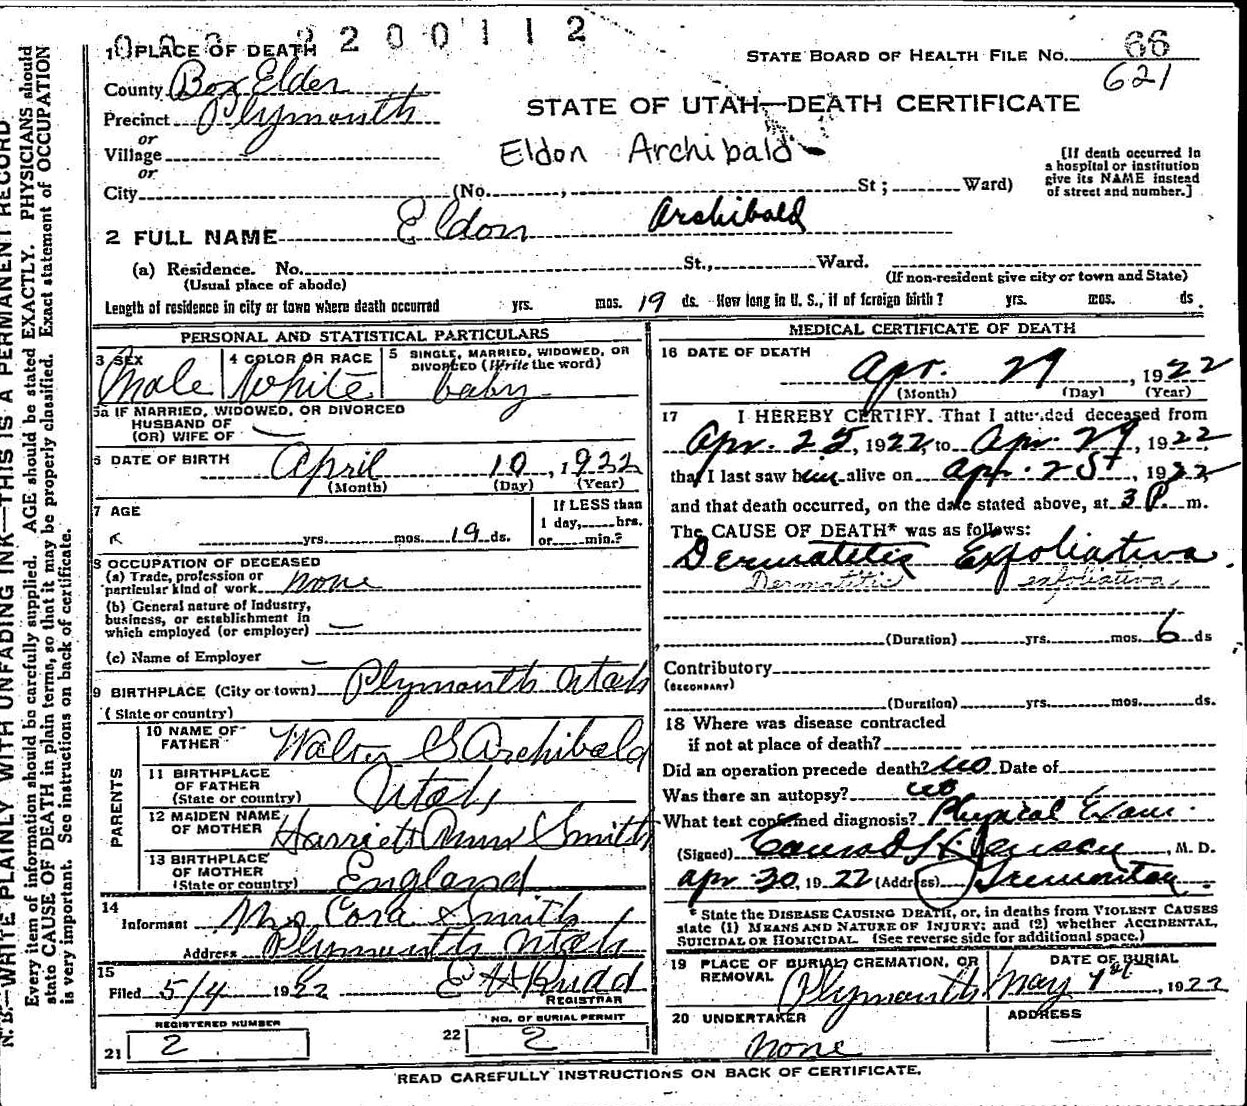 2200112
1 PLACE OF DEATH
STATE BOARD OF HEALTH FILE No. 66
621
County Box Elder
Precinct Plymouth
or
Village
or
City (No. , St; Ward)
STATE OF UTAH—DEATH CERTIFICATE
Eldon Archibald
[If death occurred in
a hospital or institution
give its NAME instead
of street and number.]
2 FULL NAME Eldon Archibald
(a) Residence. No. St., Ward.
(Usual place of abode)
(If non-resident give city or town and State)
Length of residence in city or town where death occurred yrs. mos. 19 ds. How long in U. S., if of foreign birth? yrs. mos. ds.
PERSONAL AND STATISTICAL PARTICULARS
3 SEX
Male
4 COLOR OR RACE
White
5 SINGLE, MARRIED, WIDOWED, OR
DIVORCED (Write the word)
baby
5a IF MARRIED, WIDOWED, OR DIVORCED
HUSBAND OF
(OR) WIFE OF —
6 DATE OF BIRTH April 10, 1922
(Month) (Day) (Year)
7 AGE
yrs. mos. 19 ds.
If LESS than
1 day, hrs.
or min.?
8 OCCUPATION OF DECEASED
(a) Trade, profession or
particular kind of work none
(b) General nature of Industry,
business, or establishment in
which employed (or employer) —
(c) Name of Employer —
9 BIRTHPLACE (City or town) Plymouth Utah
(State or country)
PARENTS
10 NAME OF
FATHER Walter G Archibald
11 BIRTHPLACE
OF FATHER
(State or country) Utah
12 MAIDEN NAME
OF MOTHER Harriett Ann Smith
13 BIRTHPLACE
OF MOTHER
(State or country) England
14
Informant Mrs Cora Smith
Address Plymouth Utah
15
Filed 5/4 1922 E H Rudd
REGISTRAR
REGISTERED NUMBER
21 2
NO. OF BURIAL PERMIT
22 2
MEDICAL CERTIFICATE OF DEATH
16 DATE OF DEATH
Apr. 29, 1922
(Month) (Day) (Year)
17 I HEREBY CERTIFY. That I attended deceased from
Apr. 25, 1922, to Apr. 29, 1922
that I last saw him alive on Apr. 25t, 1922
and that death occurred, on the date stated above, at 3 P. m.
The CAUSE OF DEATH* was as follows:
Dermatitis Exfoliativa.
Dermatitis exfoliativa
(Duration) yrs. mos. 6 ds
Contributory
(SECONDARY)
(Duration) yrs. mos. ds.
18 Where was disease contracted
if not at place of death?
Did an operation precede death? no Date of
Was there an autopsy? no
What test confirmed diagnosis? Physical Exam.
(Signed) Conrad H. Jensen, M. D.
Apr 30, 1922 (Address) Tremonton.
* State the DISEASE CAUSING DEATH, or, in deaths from VIOLENT CAUSES
state (1) MEANS AND NATURE OF INJURY; and (2) whether ACCIDENTAL,
SUICIDAL OR HOMICIDAL. (See reverse side for additional space.)
19 PLACE OF BURIAL, CREMATION, OR
REMOVAL Plymouth
DATE OF BURIAL
May 1st, 1922
20 UNDERTAKER
none
ADDRESS
—
READ CAREFULLY INSTRUCTIONS ON BACK OF CERTIFICATE.
N. B.—WRITE PLAINLY WITH UNFADING INK—THIS IS A PERMANENT RECORD
Every item of information should be carefully supplied. AGE should be stated EXACTLY. PHYSICIANS should
state CAUSE OF DEATH in plain terms, so that it may be properly classified. Exact statement of OCCUPATION
is very important. See instructions on back of certificate.